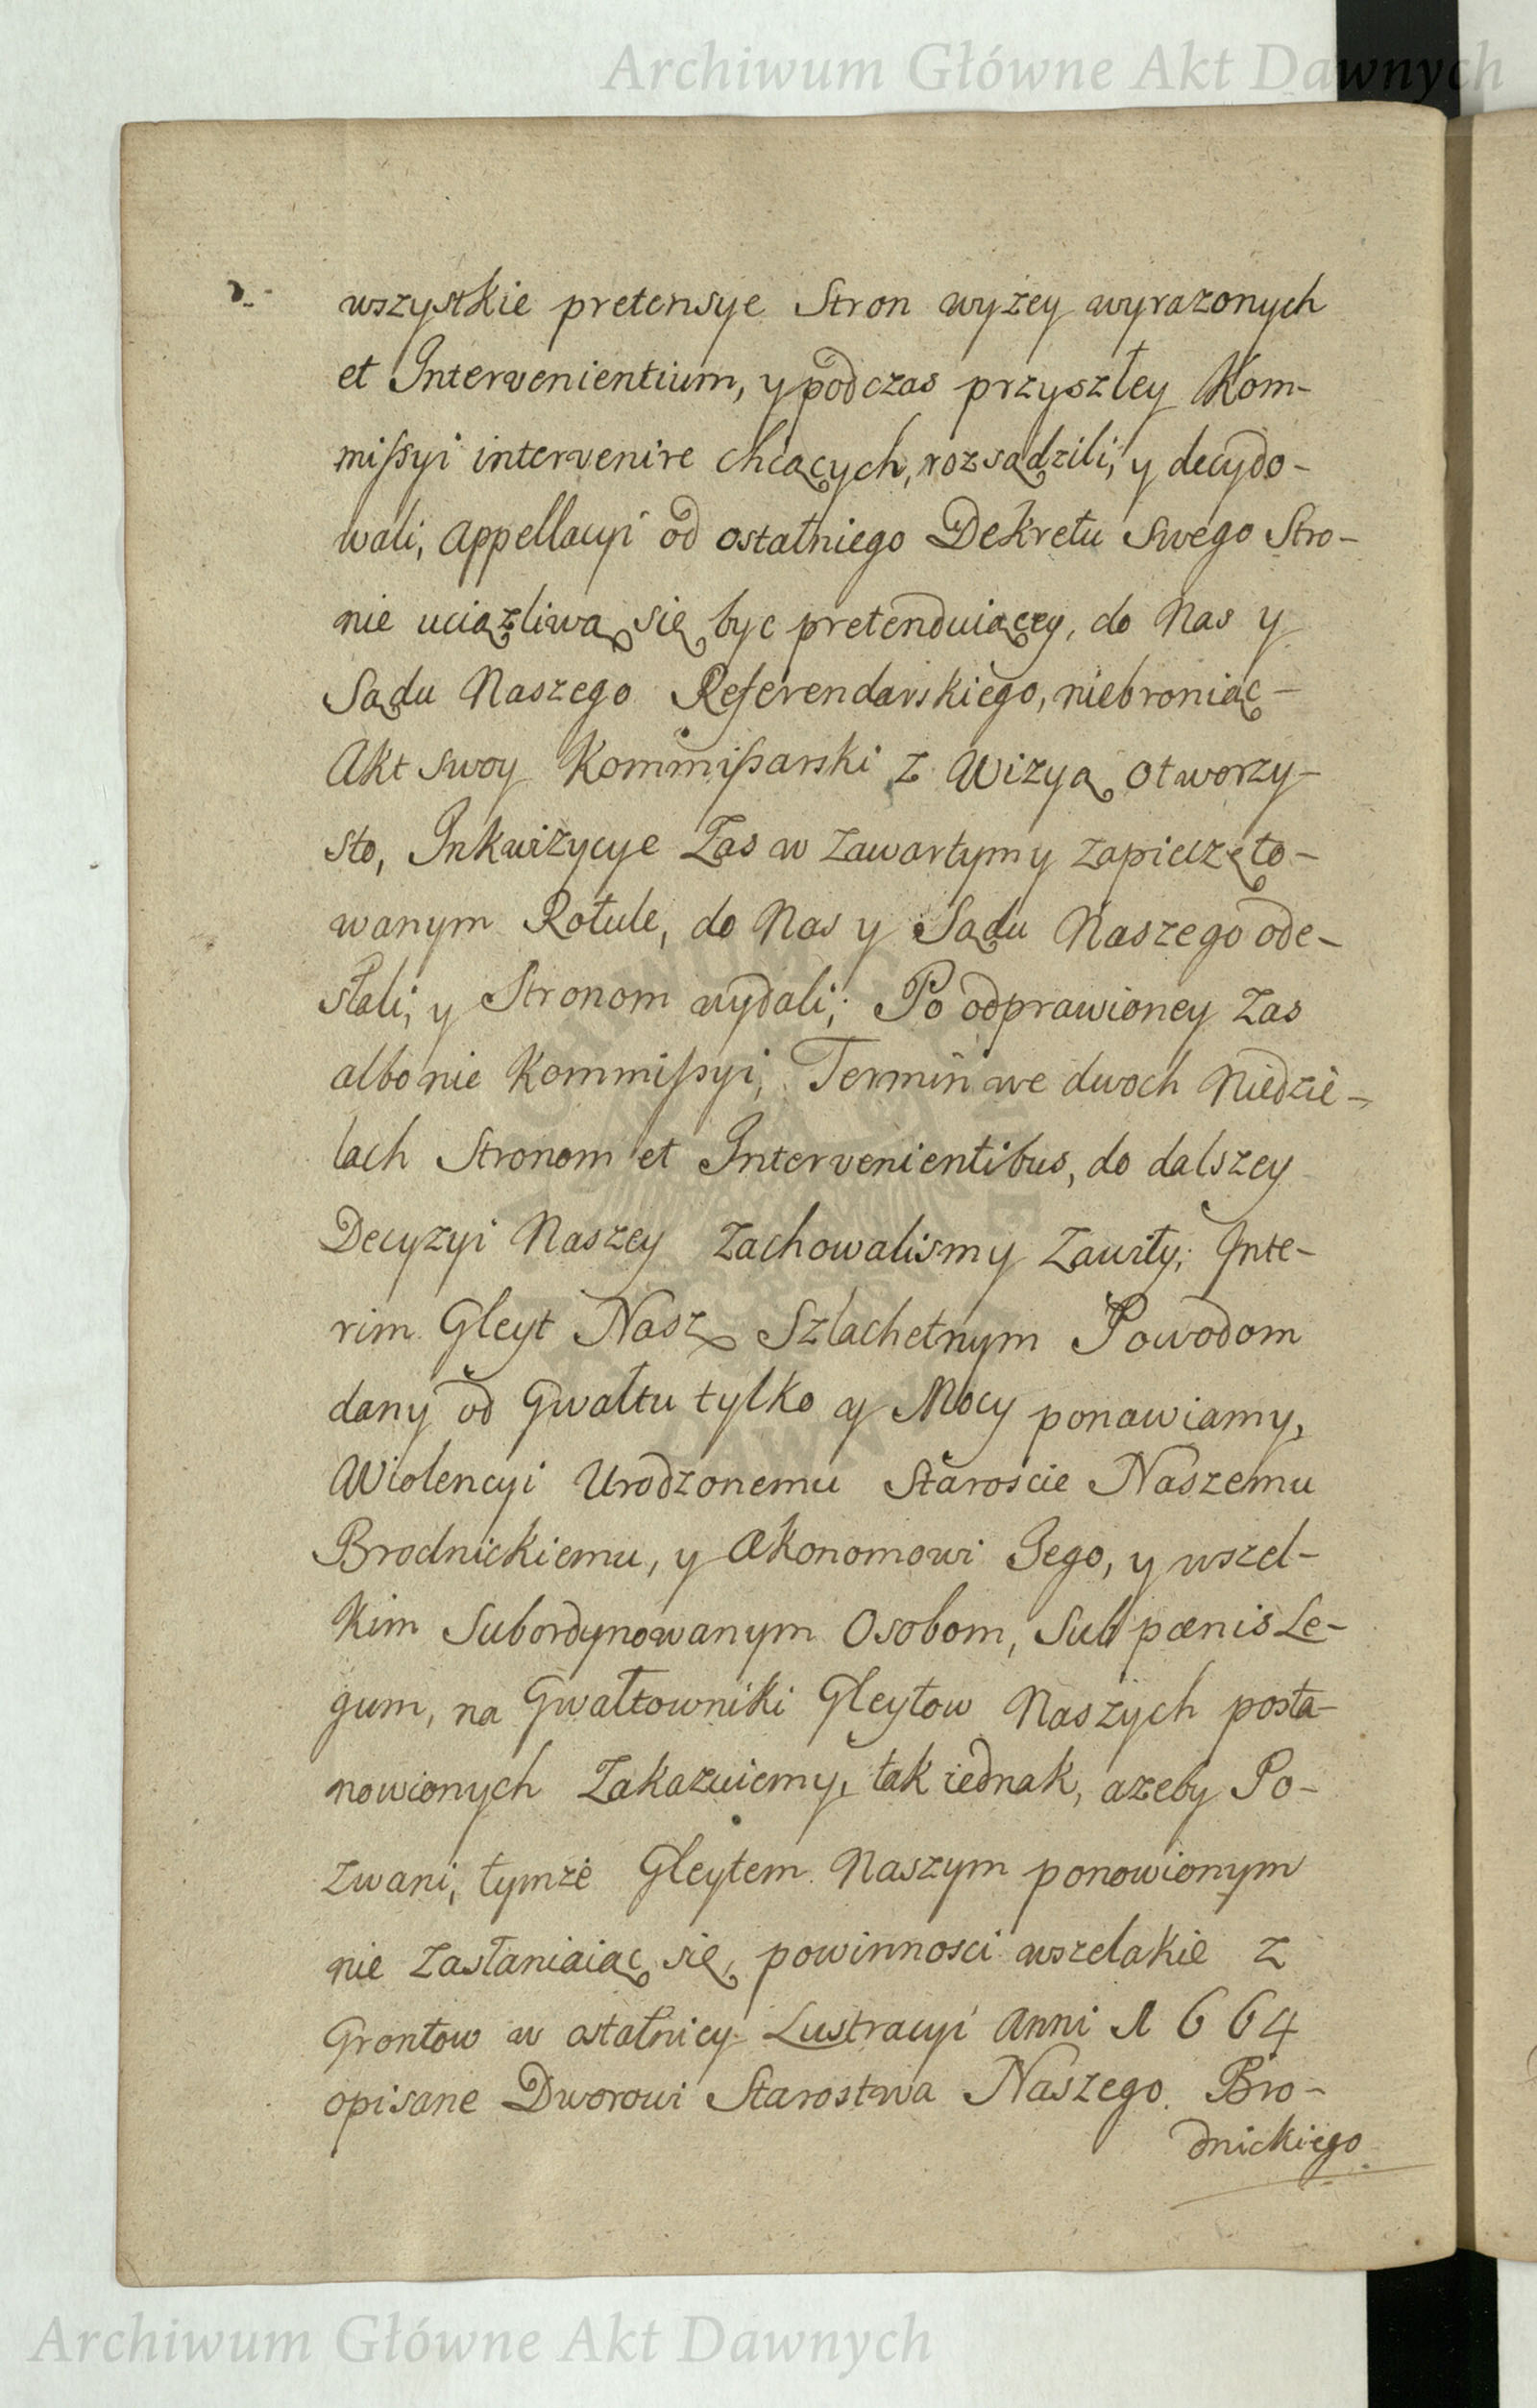 Archiwum Główne Akt Dawnych
wszystkie pretensye Stron wyżey wyrazonych
et Intervenientium, y podczas przyszłey Kom-
mißyi intervenire chcących, rozsądzili, y decydo-
wali, Appellacyi od ostatniego Dekretu Swego Stro-
nie uciązliwą się byc pretenduiącey, do Nas y
Sądu Naszego Referendarskiego, niebroniąc-
Akt swoy Kommißarski z Wizyą otworzy-
sto, Inkwizycye Zas w zawartym y zapieczęto-
wanym Rotule, do Nas y Sądu Naszego ode-
słali, y Stronom wydali; Po odprawioney Zas
albo nie Kommißyi, Termin we dwoch Niedzie-
lach Stronom et Intervenientibus, do dalszey
Decyzyi Naszey Zachowalismy Zawity; Inte-
rim Gleyt Nasz Szlachetnym Powodom
dany od Gwałtu tylko y Mocy ponawiamy,
Wiolencyi Urodzonemu Staroscie Naszemu
Brodnickiemu, y Œkonomowi Jego, y wszel-
kim Subordynowanym Osobom, Sub pœnis Le-
gum, na Gwałtowniki Gleytow Naszych posta-
nowionych Zakazuiemy, tak iednak, azeby Po-
zwani, tymże Gleytem Naszym ponowionym
nie zasłaniaiąc się, powinnosci wszelakie z
Grontow w ostatniey Lustracyi Anni 1664
opisane Dworowi Starostwa Naszego Bro-
dnickiego
Archiwum Główne Akt Dawnych